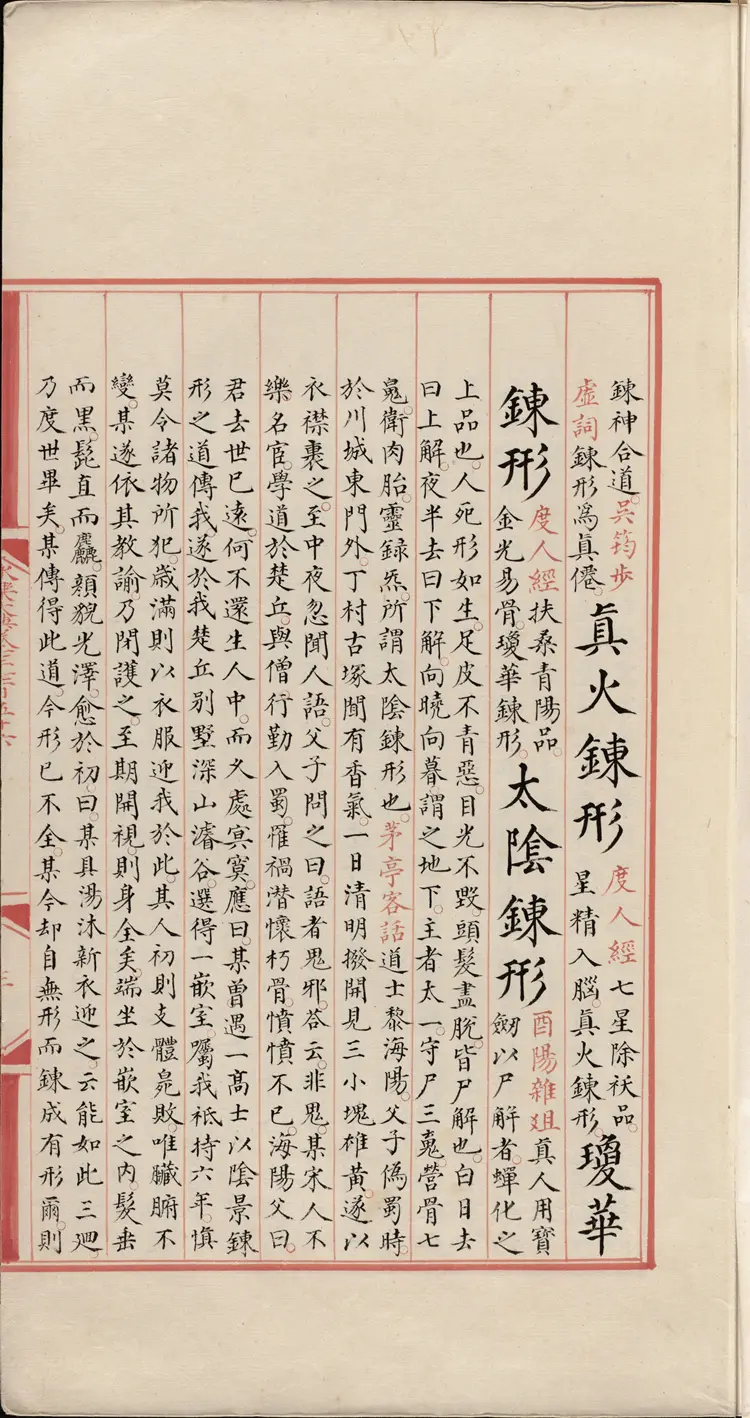 鍊神合道。吳筠步
虛詞鍊形爲眞僊。
眞火鍊形
度人經七星除祅品。
星精入腦。眞火鍊形。
瓊華
鍊形
度人經扶桑青陽品。
金光易骨。瓊華鍊形。
太陰鍊形
酉陽雜俎眞人用寶
劒以尸解者。蟬化之
上品也。人死形如生。足皮不青惡。目光不毀。頭髮盡脫。皆尸解也。白日去
曰上解。夜半去曰下解。向曉向暮。謂之地下。主者太一。守尸三䰟。營骨七
䰟。衛肉胎靈録炁。所謂太陰鍊形也。茅亭客話道士黎海陽。父子僞蜀時。
於川城東門外。丁村古塚間有香氣。一日清明撥開見三小塊雄黃。遂以
衣襟裹之。至中夜忽聞人語。父子問之曰。語者鬼邪。荅云。非鬼。某宋人不
樂名宦。學道於楚丘。與僧行勤入蜀。罹禍潛懷朽骨。憤憤不已。海陽父曰。
君去世已遠。何不還生人中。而久處㝠寞。應曰。某曾遇一髙士以陰景鍊
形之道傳我。遂於我楚丘別墅深山濬谷。選得一嵌室。囑我袛持六年。慎
莫令諸物所犯。嵗滿則以衣服迎我於此。其人初則支體臰敗。唯臟腑不
變。某遂依其教諭。乃閉護之。至期開視。則身全矣。端坐於嵌室之内。髮垂
而黑。髭直而麤。顔貌光澤。愈於初。曰。某具湯沐新衣迎之。云能如此三廻
乃度世畢矣。某傳得此道。今形已不全。某今却自無形而鍊成有形爾。則